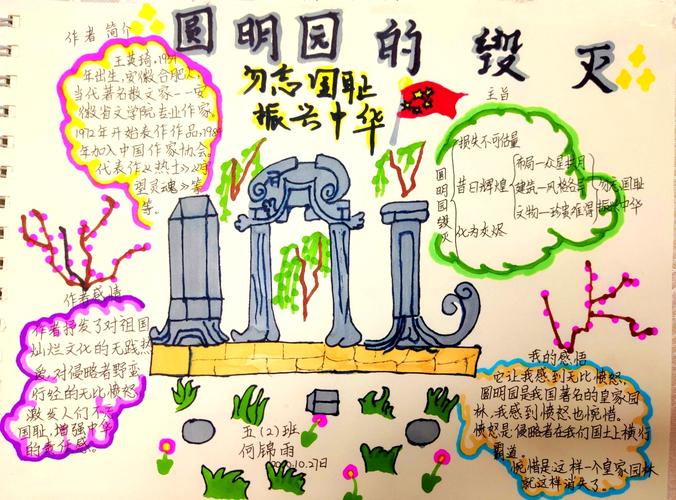 圆明园的毁灭
勿忘国耻
振兴中华
作者简介
王英琦,1954
年出生,安徽合肥人,
当代著名散文家一一安
徽省文学院专业作家。
1972年开始表作作品,198
年加入中国作家协会。
代表作《热土》《守
望灵魂》等
等。
主旨
圆明园毁灭
损失不可估量
昔日辉煌
布局一众星拱月
建筑一风格各异
文物一珍贵难得
化为灰烬
勿忘国耻
振兴中华
作者感情
作者抒发了对祖国
灿烂文化的无践热
爱,对侵略者野蛮
行经的无比愤怒,
激发人们不忘
国耻,增强中华
的责任感。
我的感悟
它让我感到无比愤怒,
圆明园是我国著名的皇家园
林,我感到愤怒也惋惜。
愤怒是侵略者在我们国土上横行
霸道。
惋惜是这样一个皇家园林
就这样消失了。
五(2)班
何锦雨
10.27日